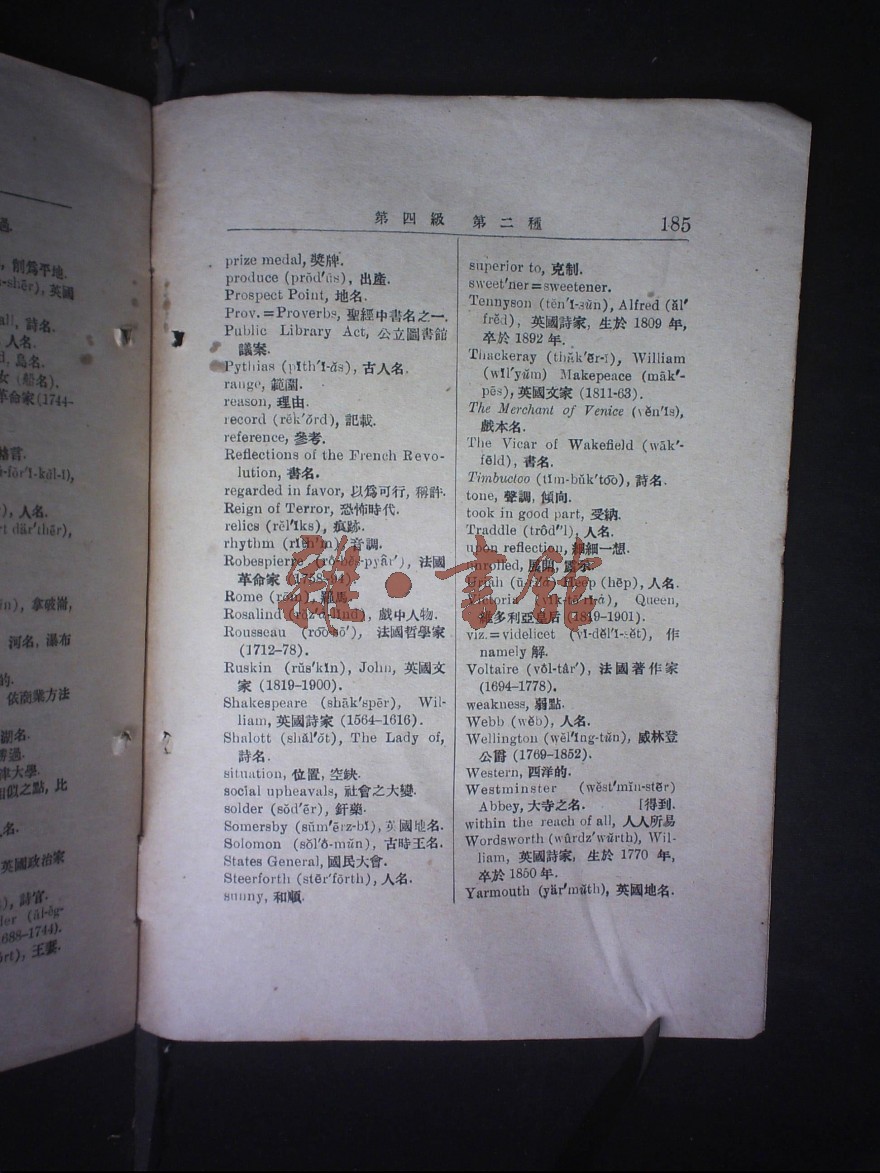 過.
, 削爲平地.
-shẽr), 英國
all, 詩名.
人名.
d, 島名.
女 (船名).
革命家 (1744–
格言.
, 人名.
rt där′thẽr),
ïn), 拿破崙,
河名, 瀑布
的.
依商業方法
湖名.
勝過.
津大學.
相似之點, 比
名.
英國政治家
, 詩官.
1688–1744).
ort), 王妻.
第四級 第二種 185
prize medal, 獎牌.
produce (prŏd′ūs), 出產.
Prospect Point, 地名.
Prov.=Proverbs, 聖經中書名之一.
Public Library Act, 公立圖書館
議案.
Pythias (pĭth′ĭ-ăs), 古人名.
range, 範圍.
reason, 理由.
record (rĕk′ŏrd), 記載.
reference, 參考.
Reflections of the French Revo-
lution, 書名.
regarded in favor, 以爲可行, 稱許.
Reign of Terror, 恐怖時代.
relics (rĕl′ĭks), 痕跡.
rhythm (rĭth′m), 音調.
Robespierre (rô-bĕs-pyâr′), 法國
革命家 (1758–94).
Rome (rōm), 羅馬.
Rosalind (rŏz′ȧ-lĭnd), 戲中人物.
Rousseau (ro͞o-sō′), 法國哲學家
(1712–78).
Ruskin (rŭs′kĭn), John, 英國文
家 (1819–1900).
Shakespeare (shāk′spēr), Wil-
liam, 英國詩家 (1564–1616).
Shalott (shăl′ŏt), The Lady of,
詩名.
situation, 位置, 空缺.
social upheavals, 社會之大變.
solder (sŏd′ẽr), 釬藥.
Somersby (sŭm′ẽrz-bĭ), 英國地名.
Solomon (sŏl′ô-mŭn), 古時王名.
States General, 國民大會.
Steerforth (stēr′fōrth), 人名.
sunny, 和順.
superior to, 克制.
sweet′ner=sweetener.
Tennyson (tĕn′ĭ-sŭn), Alfred (ăl′
frĕd), 英國詩家, 生於 1809 年,
卒於 1892 年.
Thackeray (thăk′ẽr-ĭ), William
(wĭl′yŭm) Makepeace (māk′-
pēs), 英國文家 (1811-63).
The Merchant of Venice (vĕn′ĭs),
戲本名.
The Vicar of Wakefield (wāk′-
fēld), 書名.
Timbuctoo (tĭm-bŭk′to͞o), 詩名.
tone, 聲調, 傾向.
took in good part, 受納.
Traddle (trŏd′'l), 人名.
upon reflection, 細細一想.
unrolled, 展開, 露示.
Uriah Heep (hēp), 人名.
Victoria (vĭk-tō′rĭ-ȧ), Queen,
維多利亞皇后 (1819–1901).
viz.=videlicet (vĭ-dĕl′ĭ-sĕt), 作
namely 解.
Voltaire (vŏl-târ′), 法國著作家
(1694–1778).
weakness, 弱點.
Webb (wĕb), 人名.
Wellington (wĕl′ĭng-tŭn), 威林登
公爵 (1769–1852).
Western, 西洋的.
Westminster (wĕst′mĭn-stẽr)
Abbey, 大寺之名. [得到.
within the reach of all, 人人所易
Wordsworth (wûrdz′wŭrth), Wil-
liam, 英國詩家, 生於 1770 年,
卒於 1850 年.
Yarmouth (yär′mŭth), 英國地名.
雜·書館